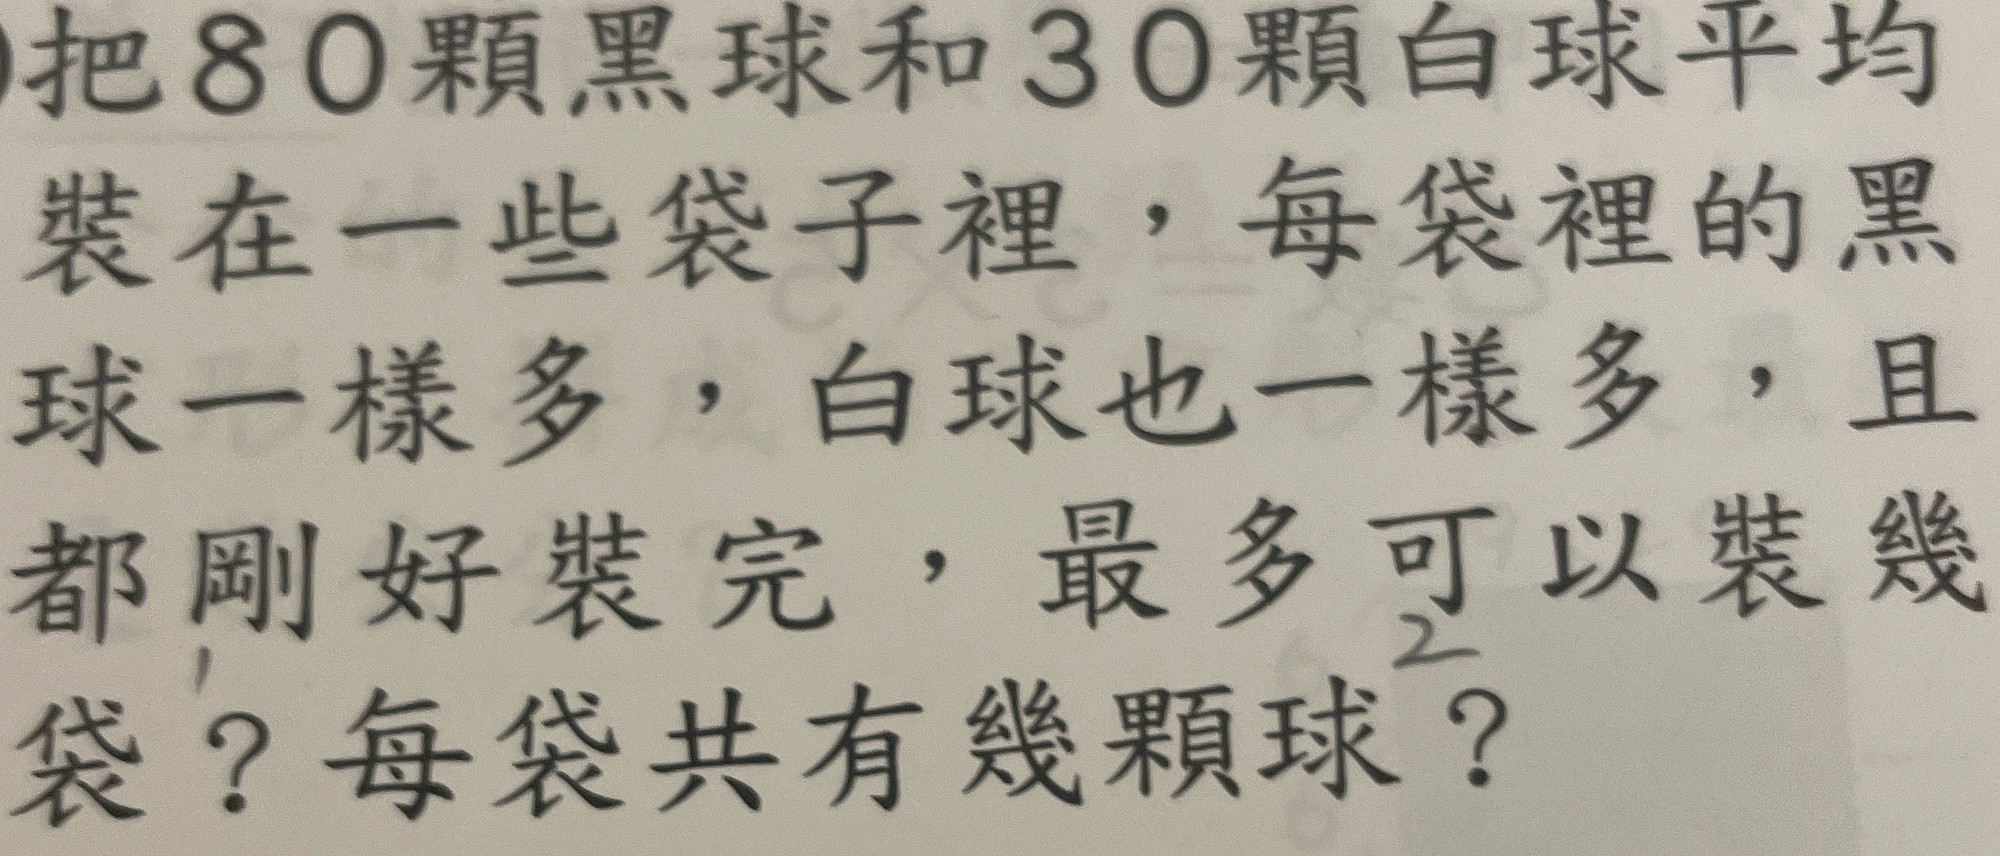 )把80顆黑球和30顆白球平均
裝在一些袋子裡，每袋裡的黑
球一樣多，白球也一樣多，且
都剛好裝完，最多可以裝幾
1 2
袋？每袋共有幾顆球？